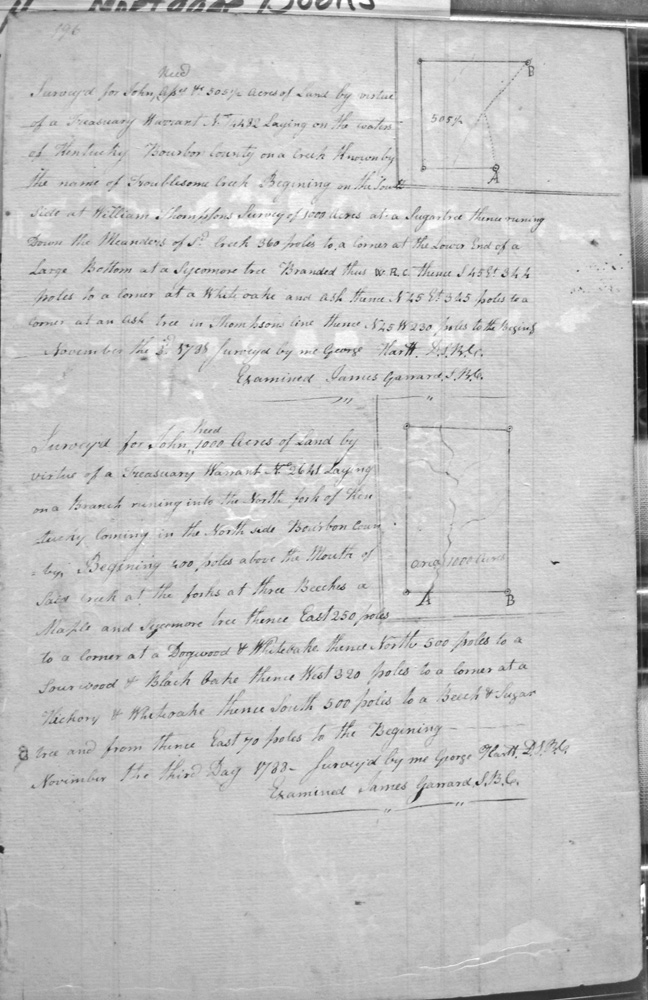 Mortgage Books
196
Reed
Survey'd for John, 505½ Acres of Land by virtue
of a Treasuary Warrant No 4482 Laying on the waters
of Kentucky Bourbon County on a Creek Known by
the name of Troublesome Creek Begining on the South
side at William Thompsons Survey of 1000 acres at a Sugartree thence runing
Down the Meanders of Sd Creek 360 poles to, a Corner at the Lower End of a
Large Bottom at a Sycomore tree Branded thus W.R.C. thence S 45 Et 344
poles to a Corner at a White oake and ash thence N 45 Et 345 poles to a
Corner at an ash tree in Thompsons line thence N 45 W 230 poles to the Begins
November the 3d 1788 Survey'd by me George Hartt. D.S.B.C.
Examined James Garrard, S.B.C.
505½
B
A
Reed
Survey'd for John, 1000 Acres of Land by
virtue of a Treasuary Warrant No 2641 Laying
on a Branch runing into the North fork of Ken
tucky Coming in the North side Bourbon Coun
=ty; Begining 400 poles above the Mouth of
Said Creek at the forks at three Beeches a
Maple and Sycomore tree thence East 250 poles
to a Corner at a Dogwood & Whiteoake thence North 500 poles to a
Sourwood & Black Oake thence West 320 poles to a Corner at a
Hickory & Whiteoake thence South 500 poles to a Beech & Sugar
tree and from thence East 70 poles to the Begining
November the third Day 1788 - Survey'd by me George Hartt. D.S.B.C.
Examined James Garrard, S.B.C.
area 1000 Acres
A
B